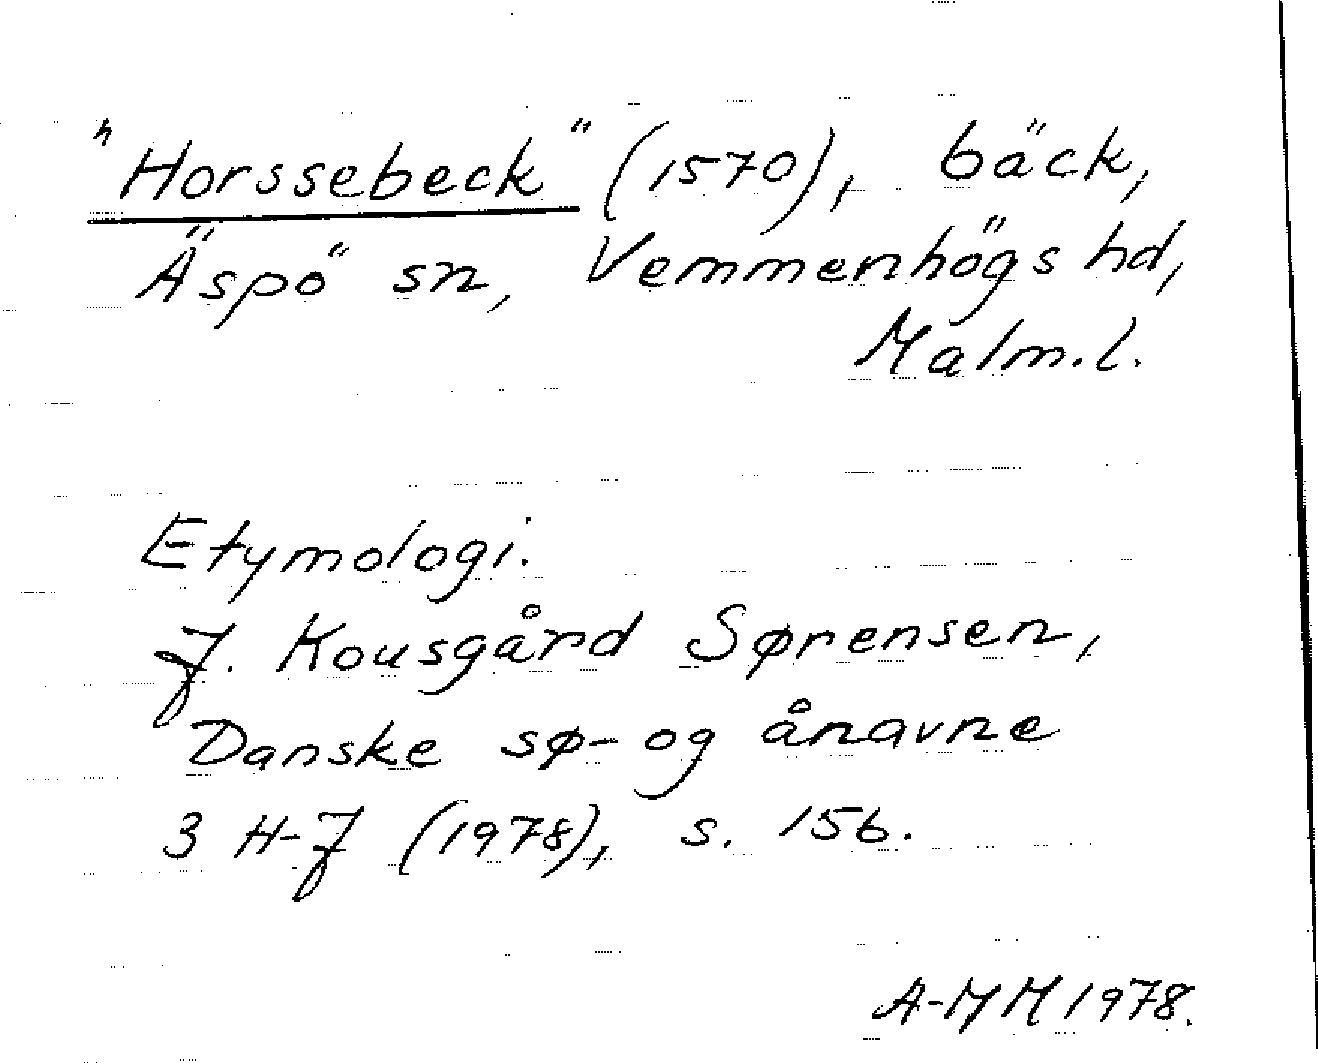 "Horssebeck" (1570), bäck,
Äspö sn, Vemmenhögs hd,
Malm.l.
Etymologi.
J. Kousgård Sørensen,
Danske sø- og ånavne
3 H-J (1978), s. 156.
A-MM 1978.